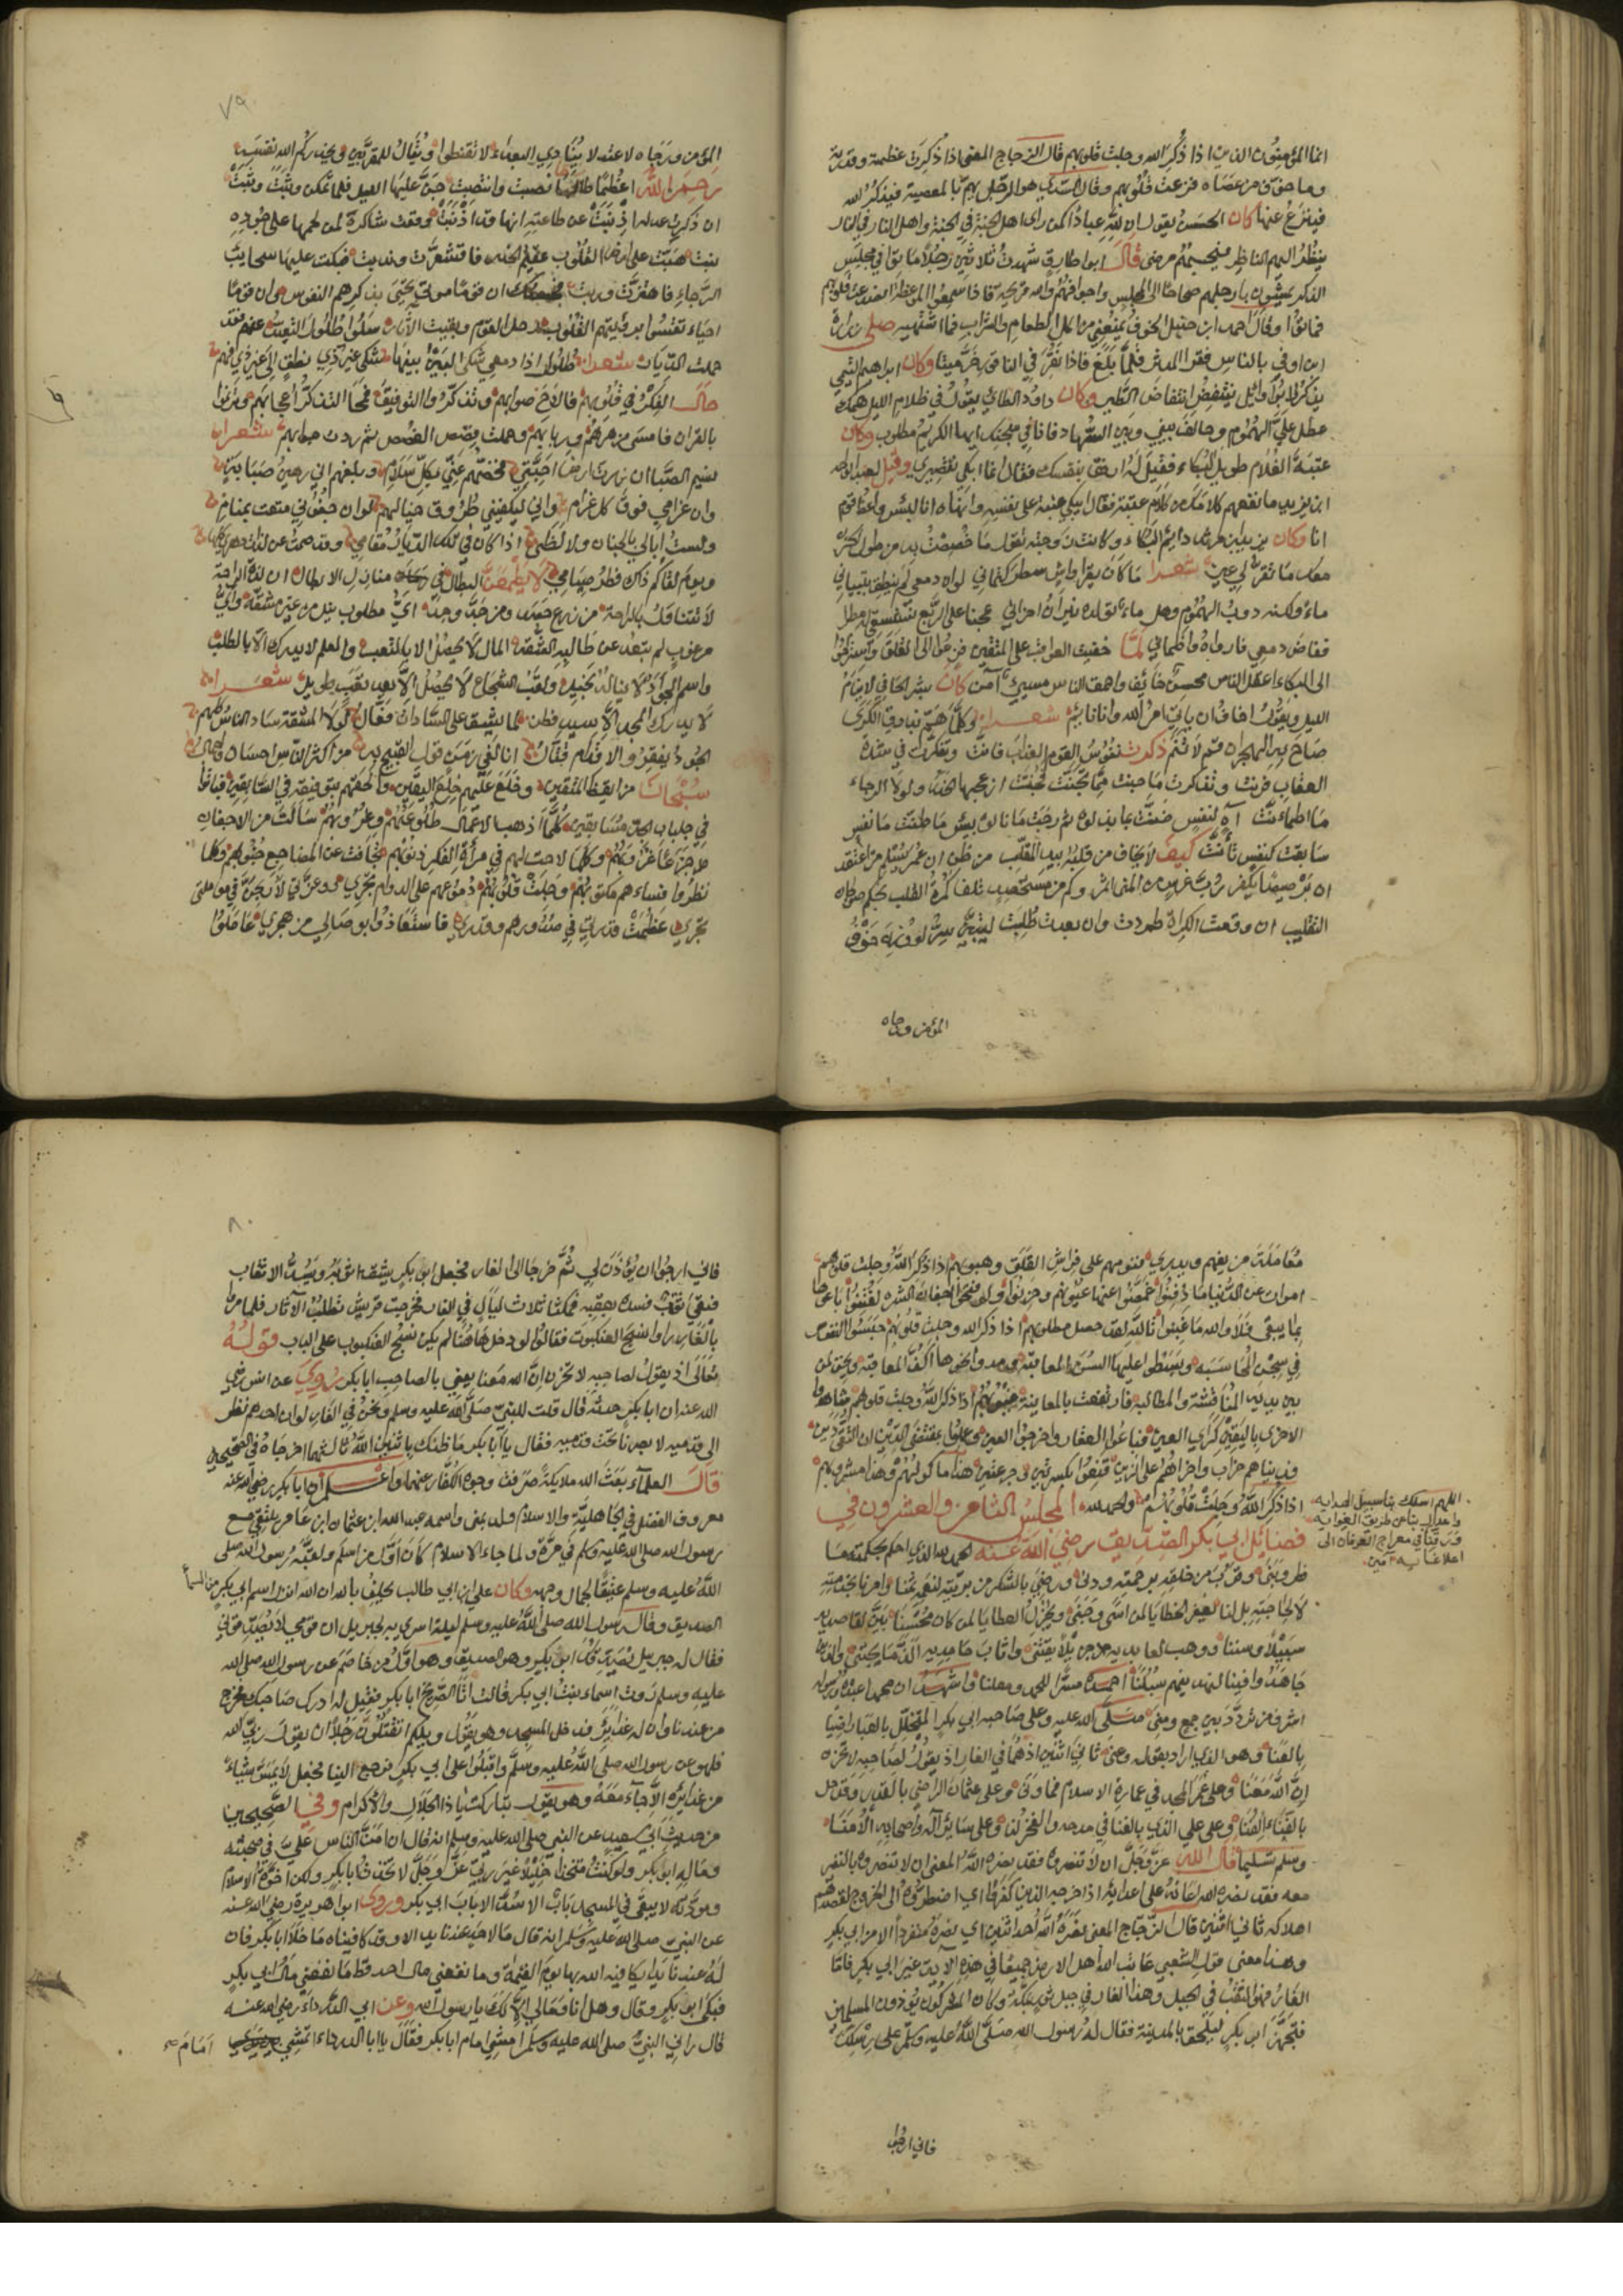 انما المؤمنون الذين اذا ذكر الله وجلت قلوبهم قال الزجاج المعنى اذا ذكرت عظمته وقدرته
وما خوف من عصاه فزعت قلوبهم وقال السدي هو الرجل يهم بالمعصية فيذكر الله
فينزع عنها كان الحسن يقول ان لله عبادا كمن راى اهل الجنة في الجنة واهل النار في النار
ينظر اليهم الناظر فيحسبهم مرضى قال ابو طارق شهدت ثلاثين رجلا ماتوا في مجلس
الذكر يمشون بارجلهم صحاحا الى المجلس واجوافهم والله قريحة فاذا سمعوا الموعظة انصدعت قلوبهم
فماتوا وقال احمد ابن حنبل الخوف يمنعني من اكل الطعام والشراب فما اشتهيه صلى زرارة
ابن اوفى بالناس فقرا المدثر فلما بلغ فاذا نقر في الناقور خر ميتا وكان ابراهيم التيمي
يذكر وابو وائل ينتفض انتفاض الطير وكان داود الطائي يقول في ظلام الليل همك
عطل علي الهموم وحالف بيني وبين السهاد فانا في سجنك ايها الكريم مطلوب وكان
عتبة الغلام طويل البكاء فقيل له ارفق بنفسك فقال انما ابكي تقصيري وقيل لعبد الواحد
ابن زيد ما نفهم كلامك من بكاء عتبة فقال ايبكي عتبة على نفسه وانهاه انا لبئس واعظ قوم
انا وكان يزيد ابن مرثد دائم البكاء وكانت زوجته تقول ما خصصت به من طول الحزن
معك ما تقر لي عين شعرا ما كان يقرا واش سطر كتماني لو ان دمعي لم ينطق بتبياني
ماء ولكنه ذوب الهموم وهل ماء تولده نيران احزاني عجبا على الربع نستسقي له مطرا
ففاض دمعي فارواه واظماني لما خفيت العواقب على المتقين فزعوا الى القلق واستراحوا
الى البكاء اعقل الناس محسن خائف واحمق الناس مسيئ آمن كان بشر الحافي لا ينام
الليل ويقول اخاف ان ياتي امر الله وانا نائم شعرا وكلما هم بذوق الكرى
صاح به الهجران قم لا تنم ذكرت نفوس القوم العذاب فانت وتفكرت في شدة
العقاب فرنت وتذكرت ما جنت مما تجنت فجنت ازعجها الحذر ولولا الرجاء
ما اطمانت آه لنفس ضنت
سابقت كنفس تأنت كيف لا يخاف من قلبه بيد المقلب من ظن ان عمر يسلم من اعتقد
التقليب ان وقعت الكراة طردت وان بعدت طلبت ليتبين سر لو وزن خوف
المؤمن ورجاه
٧٩
المؤمن ورجاه لاعتدلا ينادي البعداء لا تقنطوا ويقال للمقربين ويحذركم الله نفسه
رحم الله اعظما طالما نصبت وانتصبت جن عليها الليل فلما تمكن وثبت وثبت
ان ذكرت عدله
نبت هبت على ارض القلوب عقيم الحذر فاقشعرت وندبت فبكت عليها سحائب
الرجاء فاهتزت وربت ان قوما موتى تحيى بذكرهم النفوس وان قوما
احياء تقسوا برؤيتهم القلوب رحل القوم وبقيت الآثار سلوا طلول التعبد عنهم فقد
خلت الديار شعرا
جال الفكر في قلوبهم فلاح صوابهم وتذكروا التوفيق فمحا التذكر اعجابهم وترنموا
بالقران شعرا
نسيم الصبا ان زرت ارض احبتي فخصهم عني بكل سلام وبلغهم اني رهين صبابة
وان غرامي فوق كل غرام واني ليكفيني طروق خيالهم لو ان جفوني متعت بمنام
ولست ابالي بالجنان ولا لظى اذا كان في تلك الديار مقامي وقد صمت عن لذات دهري كلها
ويوم لقاكم ذاك فطر صيامي لا يطمعن البطال في منازل الابطال ان لذة الراحة
لا تتناول بالراحة من زرع حصد ومن جد وجد اي مطلوب نيل من غير مشقة واي
مرغوب لم تبعد عن طالبه الشقة المال لا يحصل الا بالتعب والعلم لا يدرك الا بالطلب
واسم الجواد لا يناله بخيل ولقب الشجاع لا يحصل الا بعد تعب طويل شعرا
لا يدرك المجد الا سيد فطن لما يشق على السادات فعال لولا المشقة ساد الناس كلهم
الجود يفقر والاقدام قتال انا لفي زمن ترك القبيح به من اكثر الناس احسان واجمال
سبحان من ايقظ المتقين وخلع عليهم خلع اليقين والحقهم بتوفيقه في السابقين فباتوا
في جلباب الجد متسابقين كلما اذهب الاعمال طلوعهم وغروبهم سالت من الاجفان
جزعا غروبهم وكلما لاحت لهم في مرآة الفكر ذنوبهم تجافت عن المضاجع جنوبهم وكلما
نظروا فساءهم مكتوبهم وجلت قلوبهم دموعهم على الدوام تجري
تجري عظمت قدرتي في صدورهم وقدري فاستعاذوا بوصالي من هجري عاملوا
معاملة من يفهم ويدري فنومهم على فراش القلق وهبوبهم اذا ذكر الله وجلت قلوبهم
بما يبقى فلا والله ما غبنوا تالله لقد حصل مطلوبهم اذا ذكر الله وجلت قلوبهم حبسوا النفوس
في سجن المحاسبة وبسطوا عليها السن المعاتبة ومدوا نحوها اكف المعاقبة ويحق لمن
بين يديه المناقشة والمطالبة فارتفعت بالمعاينة عيوبهم اذا ذكر الله وجلت قلوبهم شاهدوا
الاخرى باليقين كراي العين فباعوا العقار واخرجوا العين وعلموا بمقتضى الدين ان التقى دين
فدنياهم خراب واخراهم على الزين قنعوا بكسرتين وجرعتين هذا ماكولهم وهذا مشروبهم
اذا ذكر الله وجلت قلوبهم والحمد لله المجلس الثامن والعشرون في
اللهم اسلك بنا سبيل الهداية
واعدل بنا عن طريق الغواية
ورقنا في معراج العرفان الى
اعلا غاية آمين
فضائل ابي بكر الصديق رضي الله عنه الحمد لله الذي احكم بحكمته ما
فطر وبنى وقرب من خلقه برحمته ودنى ورضي بالشكر من بريته لنعمه ثمنا وامرنا بخدمته
لا لحاجته بل لنا يغفر الخطايا لمن اسى وجنى ويجزل العطايا لمن كان محسنا بين لقاصديه
سبيلا وسننا ووهب لعابديه جزيلا يقتنى واثاب حامديه الذ ما يجتنى والذين
جاهدوا فينا لنهدينهم سبلنا احمده مسرا للحمد ومعلنا واشهد ان محمدا عبده ورسوله
اشرف من تردد بين جمع ومنى صلى الله عليه وعلى صاحبه ابي بكر المتخلل بالعبا راضيا
بالعنا وهو الذي اراد بقوله وعنى ثاني اثنين اذ هما في الغار اذ يقول لصاحبه لا تحزن
ان الله معنا وعلى عمر المجد في عمارة الاسلام فما ونى وعلى عثمان الراضي بالقدر وقد حل
بالفناء الفنا وعلى علي الذي بالغنا في مدحه والفخر لنا وعلى سائر آله واصحابه الامنا
وسلم تسليما قال الله عز وجل ان لا تنصروه فقد نصره الله المعنى ان لا تنصروه بالنفر
معه فقد نصره الله اعانه على اعدائه اذ اخرجه الذين كفروا اي اضطروه الى الخروج لقصدهم
اهلاكه ثاني اثنين قال الزجاج المعنى نصره الله احد اثنين اي نصره منفردا الا من ابي بكر
وهذا معنى قول الشعبي عاتب الله اهل الارض جميعا في هذه الآية غير ابي بكر فاما
الغار فهو النقب في الجبل وهذا الغار في جبل ثور بمكة وكان المشركون يؤذون المسلمين
فتجهز ابو بكر ليلحق بالمدينة فقال له رسول الله صلى الله عليه وسلم على رسلك
فاني ارجوا
٨٠
فاني ارجوا ان يؤذن لي ثم خرجا الى الغار فجعل ابو بكر يشق ثوبه ويسد الانقاب
فبقي نقب فسده بعقبه فمكثا ثلاث ليال في الغار فخرجت قريش تطلب الآثار فلما مروا
بالغار راوا نسج العنكبوت فقالوا لو دخل هاهنا لم يكن نسج العنكبوت على الباب قوله
تعالى اذ يقول لصاحبه لا تحزن ان الله معنا يعني بالصاحب ابا بكر روي عن انس رضي
الله عنه ان ابا بكر حدثه قال قلت للنبي صلى الله عليه وسلم ونحن في الغار لو ان احدهم نظر
الى قدميه لابصرنا تحت قدميه فقال يا ابا بكر ما ظنك باثنين الله ثالثهما اخرجاه في الصحيحين
قال العلماء بعث الله ملايكة صرفت وجوه الكفار عنهما واعلم ان ابا بكر رضي الله عنه
معروف الفضل في الجاهلية والاسلام ولد بمنى واسمه عبد الله ابن عثمان ابن عامر يلتقي مع
رسول الله صلى الله عليه وسلم في مرة ولما جاء الاسلام كان اول من اسلم ولقبه رسول الله صلى
الله عليه وسلم عتيقا لجمال وجهه وكان علي ابن ابي طالب يحلف بالله ان الله انزل اسم ابي بكر من السماء
الصديق وقال رسول الله صلى الله عليه وسلم ليلة اسري به لجبريل ان قومي لا يصدقوني
فقال له جبريل يصدقك ابو بكر وهو الصديق وهو اول من خاصم عن رسول الله صلى الله
عليه وسلم روت اسماء بنت ابي بكر قالت اتا الصريخ ابا بكر فقيل له ادرك صاحبك فخرج
من عندنا وان له غدائر فدخل المسجد وهو يقول ويلكم اتقتلون رجلا ان يقول ربي الله
فلهو عن رسول الله صلى الله عليه وسلم واقبلوا على ابي بكر فرجع الينا فجعل لا يمس شياء
من غدائره الا جاء معه وهو يقول تباركت يا ذا الجلال والاكرام وفي الصحيحين
من حديث ابي سعيد عن النبي صلى الله عليه وسلم انه قال ان امن الناس علي في صحبته
وماله ابو بكر ولو كنت متخذا خليلا غير ربي عز وجل لاتخذت ابا بكر ولكن اخوة الاسلام
ومودته لا يبقى في المسجد باب الا سد الا باب ابي بكر وروى ابو هريرة رضي الله عنه
عن النبي صلى الله عليه وسلم انه قال ما لاحد عندنا يد الا وقد كافيناه ما خلا ابا بكر فان
له عندنا يدا يكافيه الله بها يوم القيمة وما نفعني مال احد قط ما نفعني مال ابي بكر
فبكى ابو بكر وقال وهل انا ومالي الا لك يا رسول الله وعن ابي الدرداء رضي الله عنه
قال راني النبي صلى الله عليه وسلم امشي امام ابا بكر فقال يا ابا الدرداء اتمشي امام